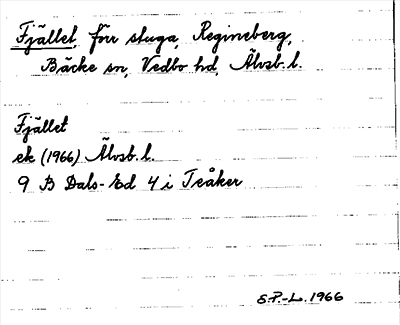 Fjället, förr stuga, Regineberg,
Bäcke sn, Vedbo hd, Älvsb. l.
Fjället
ek (1966) Älvsb. l.
9 B Dals-Ed 4 i Teåker
E.P.-L. 1966